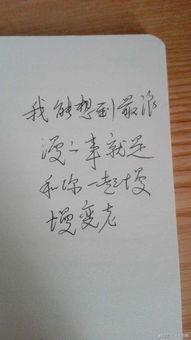 我能想到最浪
漫之事就是
和你一起慢
慢变老